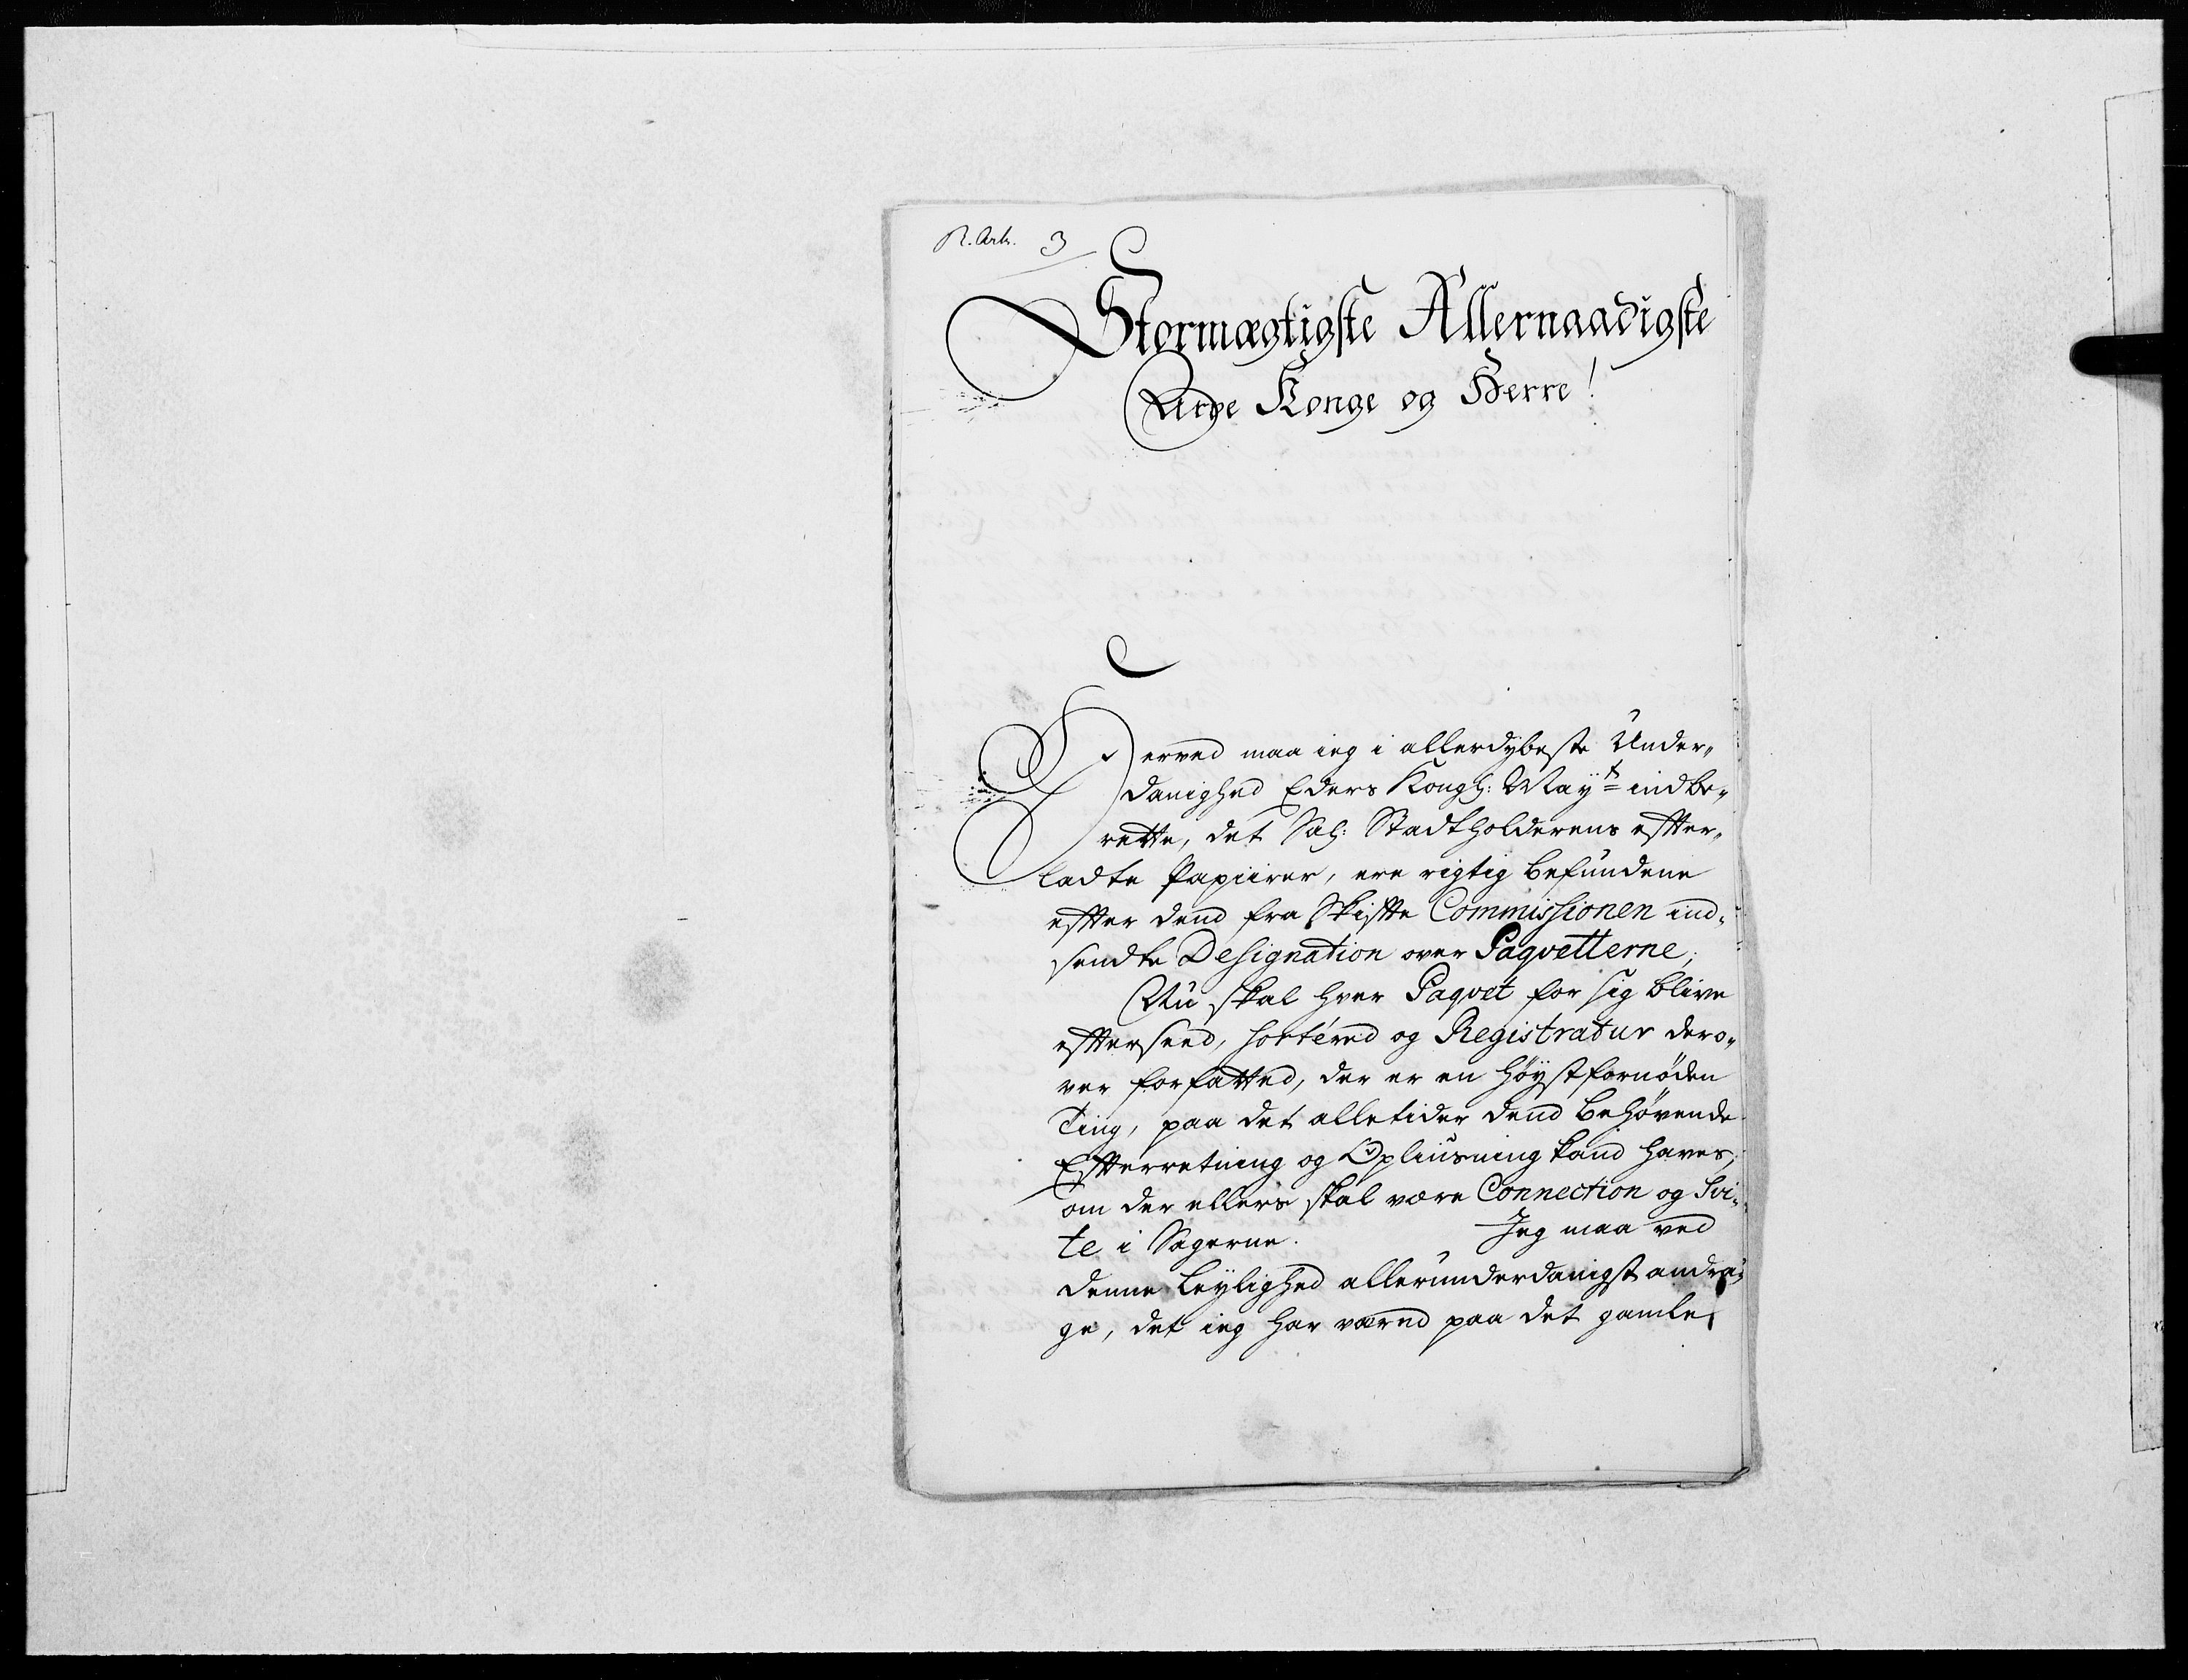 R. Ark. 3
Stormægtigste Allernaadigste
Arve Konge og Herre!
Herved maa ieg i allerdybeste Under„
danighed Eders Kongl: May:ts indbe„
rette, det Sal: Stadtholderens effter„
ladte Papiirer, ere rigtig befundene
effter dend fra Skiffte Commissionen ind„
sendte Designation over Paqvetterne;
Nu skal hver Paqvet for sig blive
effterseed, sortéred og Registratur dero„
ver forfatted, der er en høystfornøden
Ting, paa det alletider dend behøvende
Effterretning og Opliusning kand haves,
om der ellers skal være Connection og Svi„
te i Sagerne. Jeg maa ved
denne Leylighed allerunderdanigst andra„
ge, det ieg har været paa det gamle